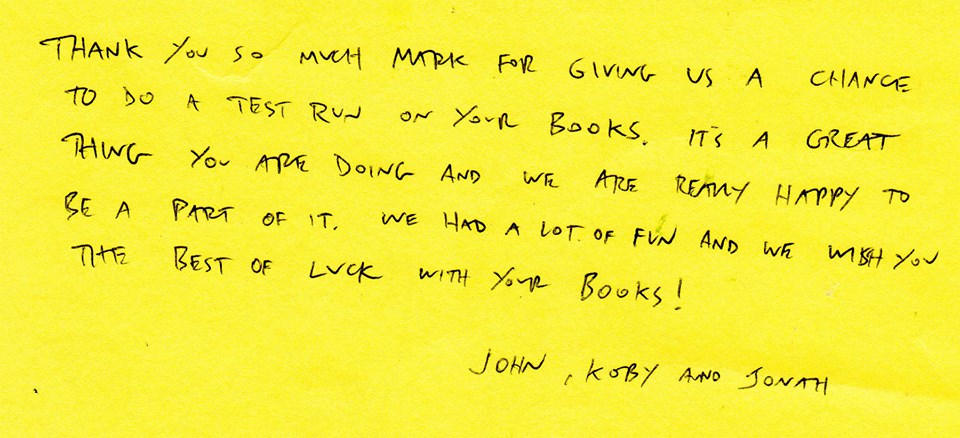 THANK YOU SO MUCH MARK FOR GIVING US A CHANCE
TO DO A TEST RUN ON YOUR BOOKS. IT'S A GREAT
THING YOU ARE DOING AND WE ARE REALLY HAPPY TO
BE A PART OF IT. WE HAD A LOT OF FUN AND WE WISH YOU
THE BEST OF LUCK WITH YOUR BOOKS!
JOHN, KOBY AND JONAH